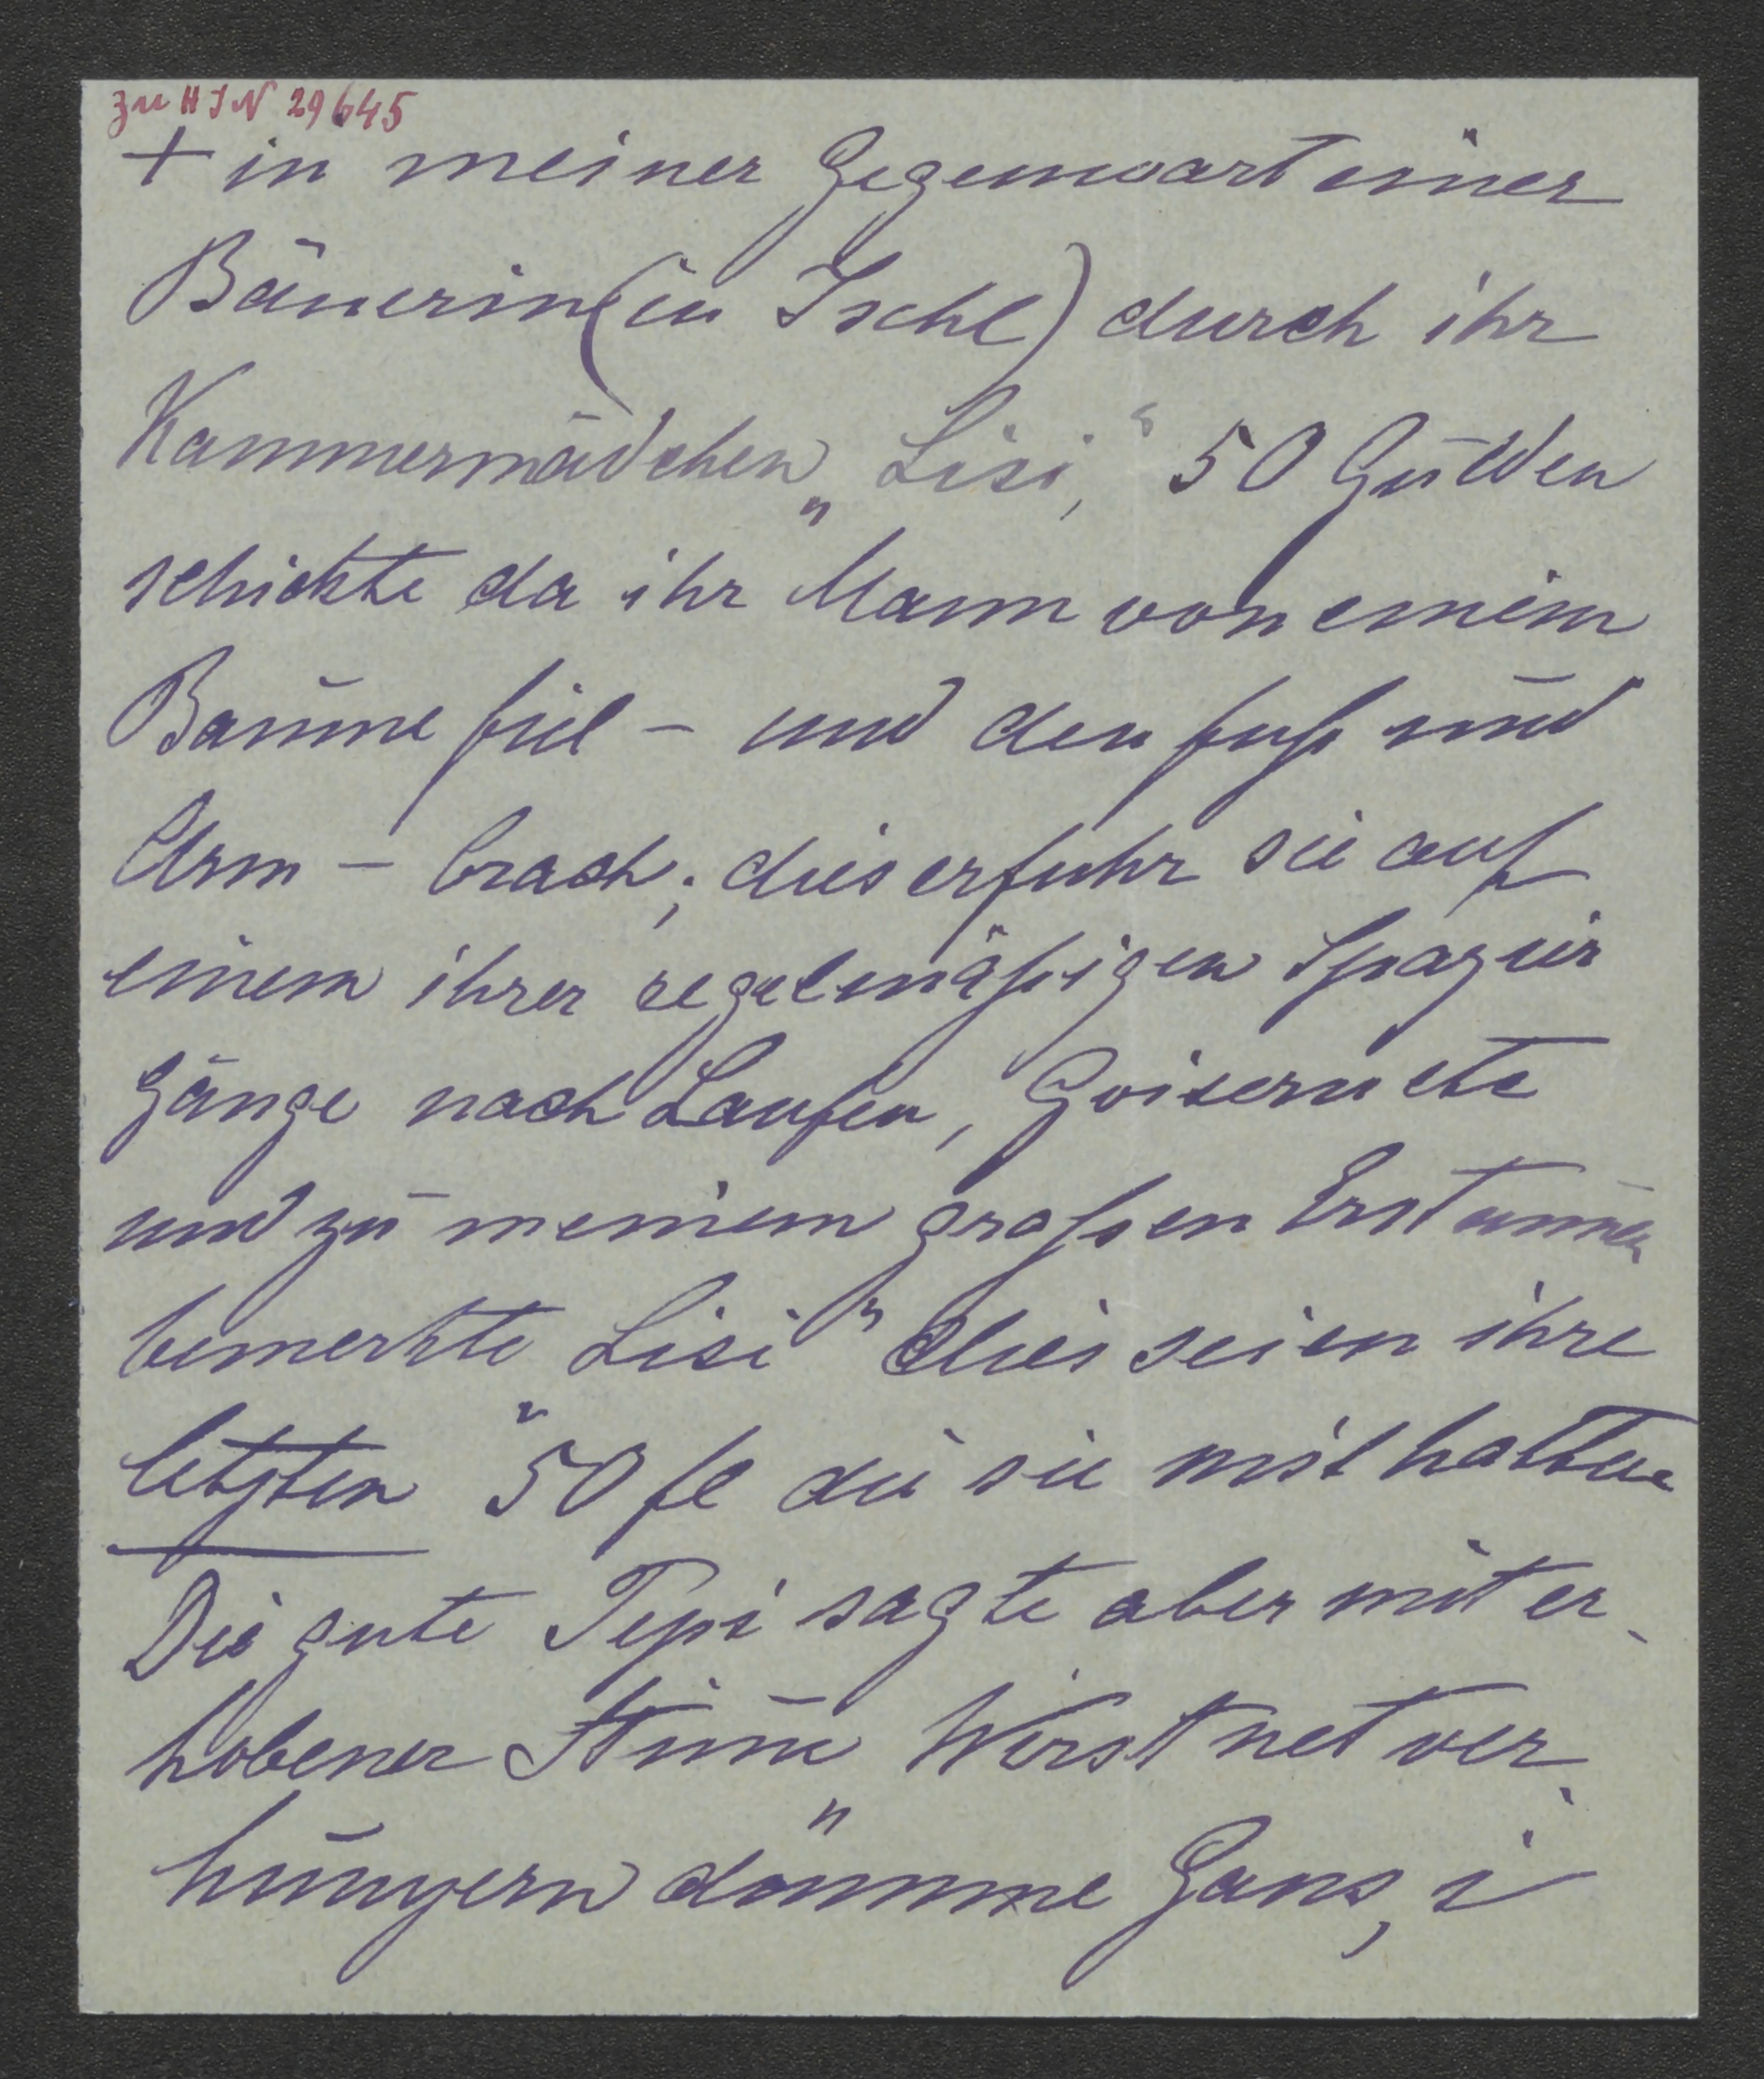 zu H I N 29645
+ in meiner Gegenwart einer
Bäuerin (in Ischl) durch ihr
Kammermädchen „Lisi," 50 Gulden
schickte da ihr Mann von einem
Baume fiel – und den fuß und
Arm – brach; dies erfuhr sie auf
einem ihrer regelmäßigen Spazier
gänge nach Laufen, Goisern etc
und zu meinem großen Erstaunen
bemerkte Lisi „dies seien ihre
letzten" 50 fl die sie mit hatten
Die gute Pepi sagte aber mit er-
hobener Stimme „Wirst net ver-
hungern dumme Gans, i